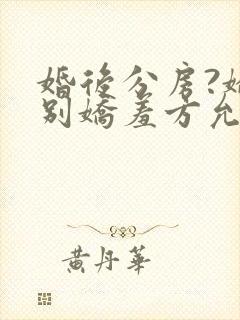 婚後分房?
別嬌羞方允
黃丹華